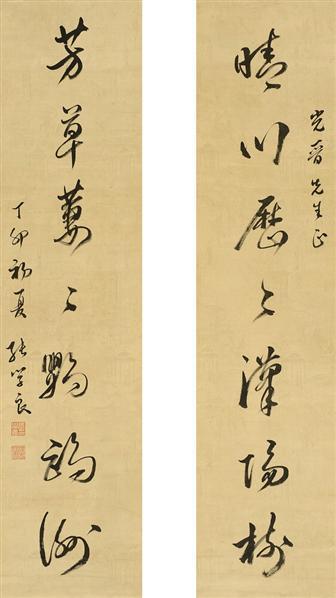 晉先生正
晴川歷々漢陽樹
芳草萋々鸚鵡洲
丁卯初夏 張學良